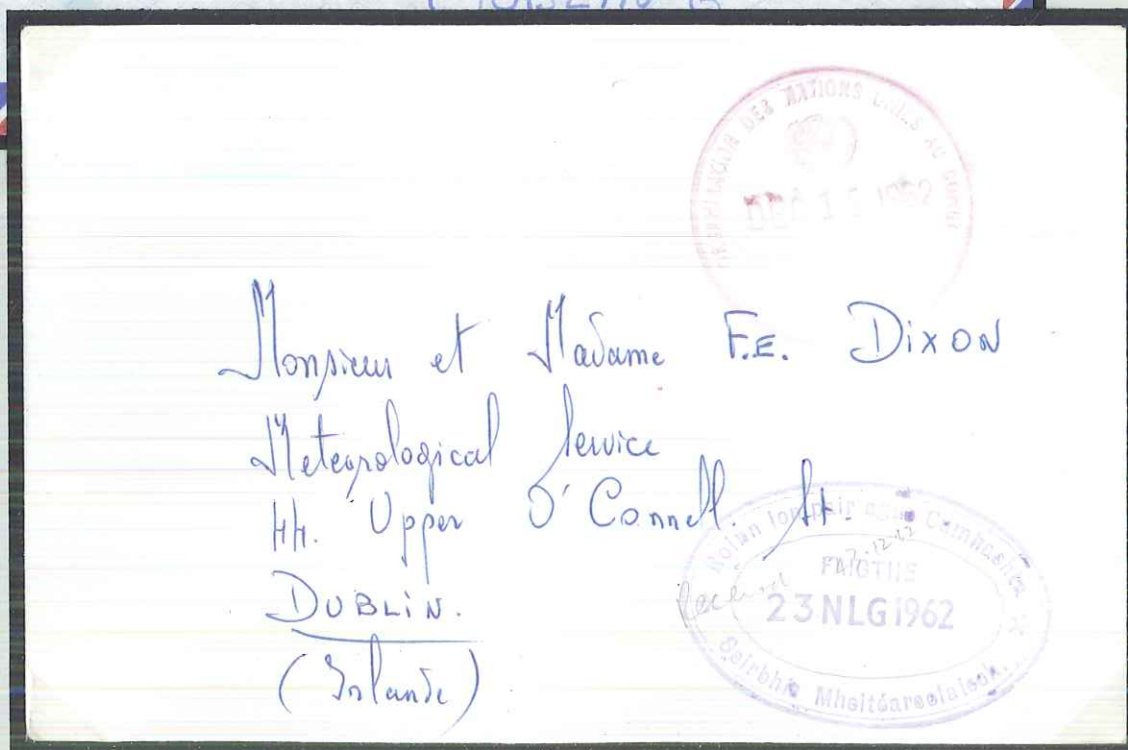 DES NATIONS UNIES AU
DEC 1 1962
Monsieur et Madame F.E. Dixon
Meteorological Service
44. Upper O'Connell. St.
DUBLIN.
(Irlande)
Roinn Iompair agus Cumhachta
FAIGTHS
Received 27-12-62
23 NLG 1962
Seirbhís Mheitéareolaíoch